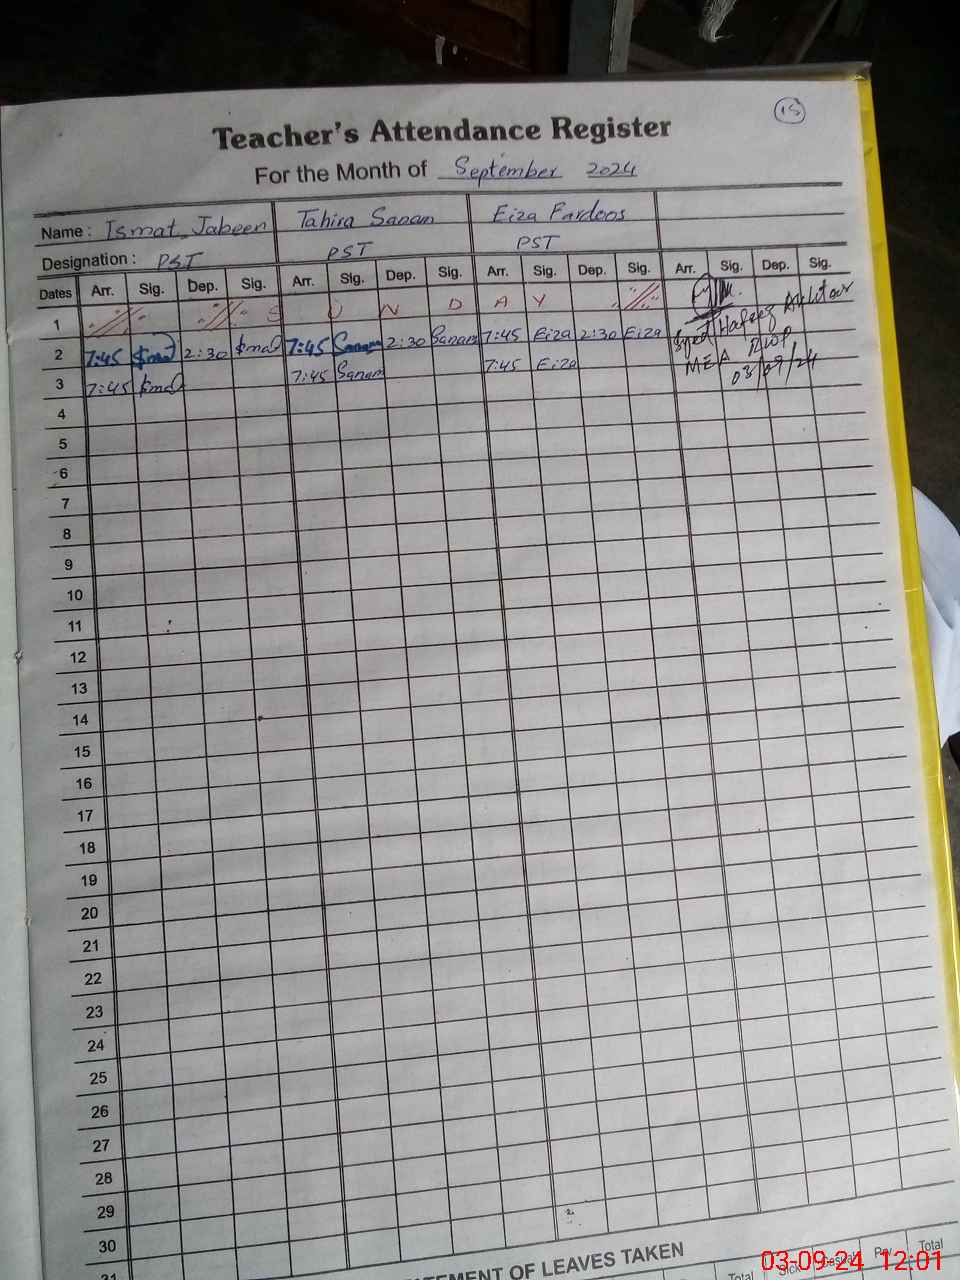 15
Teacher's Attendance Register
For the Month of September 2024
Name : Ismat Jabeen Tahira Sanam Eiza Fardoos
Designation : PST PST PST
Dates Arr. Sig. Dep. Sig. Arr. Sig. Dep. Sig. Arr. Sig. Dep. Sig. Arr. Sig. Dep. Sig.
1 S U N D A Y
2 7:45 2:30 7:45 Sanam 2:30 Sanam 7:45 Eiza 2:30 Eiza
Syed Hafeez Akhtar
3 7:45 7:45 Sanam 7:45 Eiza
MEA
03/09/24
4
5
6
7
8
9
10
11
12
13
14
15
16
17
18
19
20
21
22
23
24
25
26
27
28
29
30
31
TEMENT OF LEAVES TAKEN
Total Sick Casual Total
03-09-24 12:01